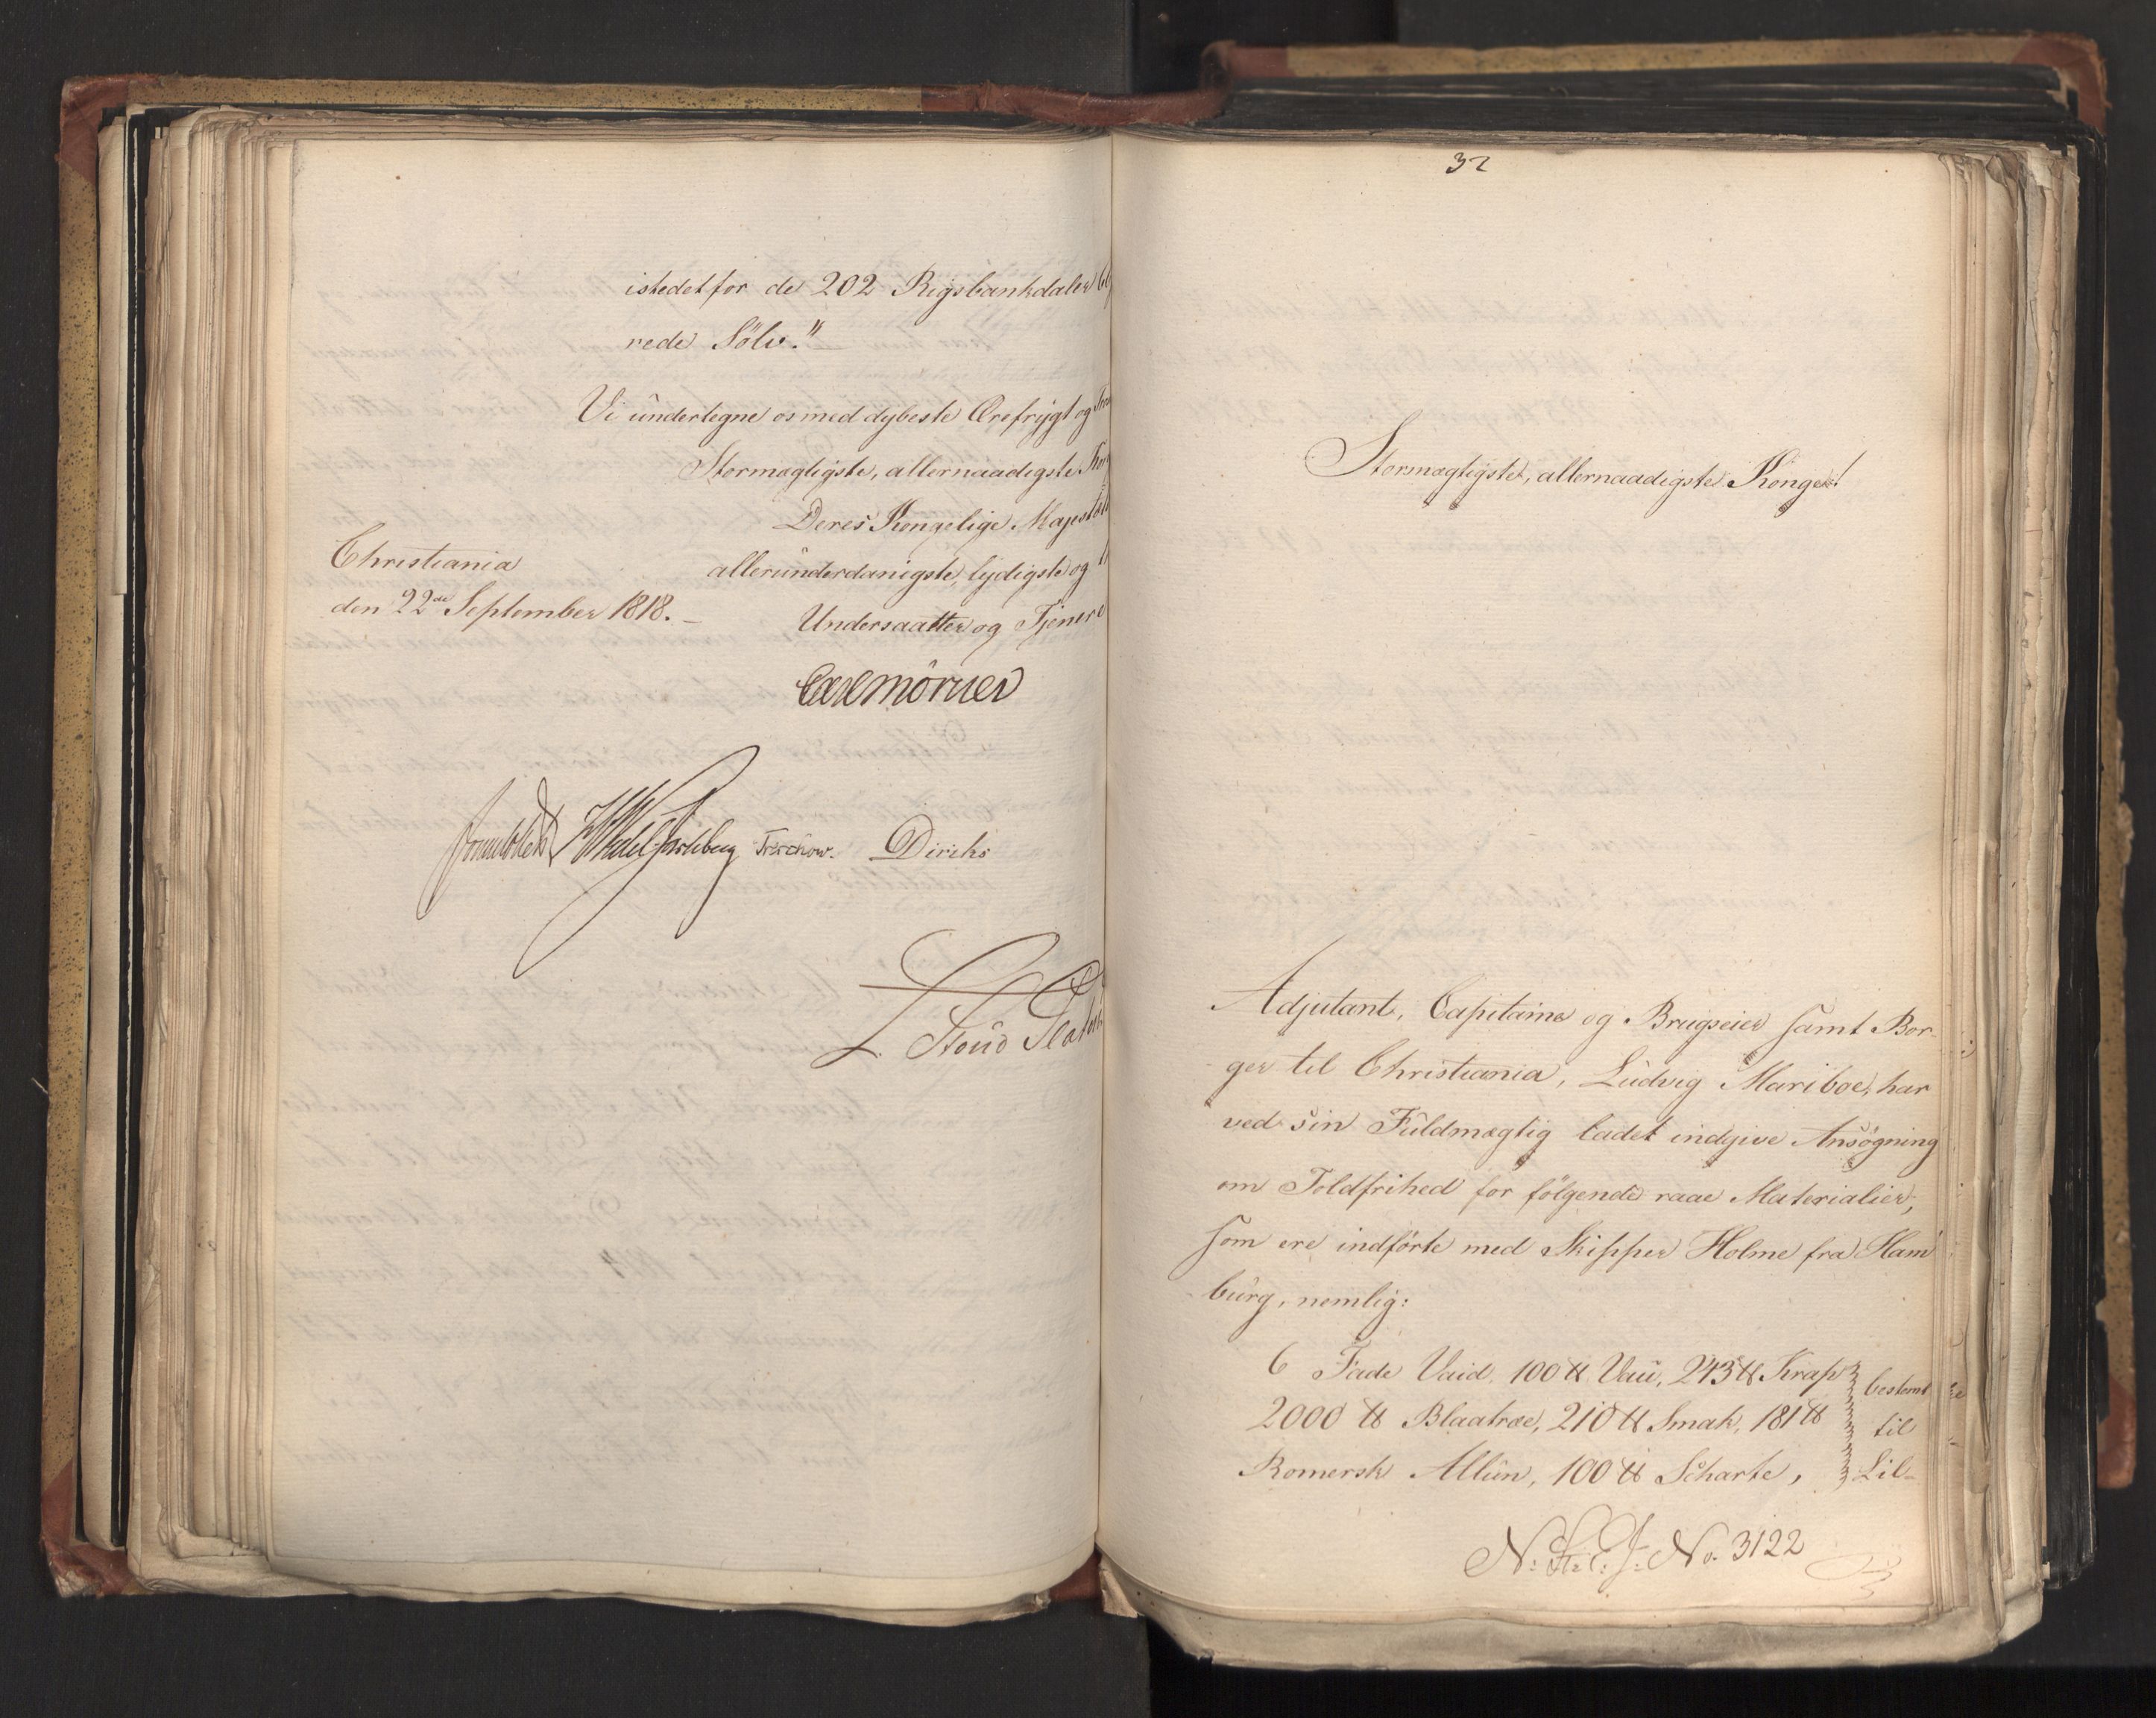 istedet for de 202 Rigsbankdaler
rede Sölv."
Vi undertegne os med dybeste Ærefrygt og
Stormægtigste, allernaadigste
Deres Kongelige Majestæts
allerunderdanigste, lydigste og
Undersaatter og Tjenere
Christiania
den 22de September 1818. –
Carl Mörner
Sommerhielm HWedel Jarlsberg Treschow. Diriks
L. Stoud Platou
32
Stormægtigste, allernaadigste Konge!
Adjutant, Capitaine og Brugseier samt Bor-
ger til Christiania, Ludvig Mariboe, har
ved sin Fuldmægtig ladet indgive Ansögning
om Toldfrihed for fölgende raae Materialier,
som ere indförte med Skipper Holme fra Ham
burg, nemlig:
6 Fade Vaid, 100 ℔ Vau, 243 ℔ Krap
2000 ℔ Blaatræe, 210 ℔ Smak, 181 ℔
Romersk Allun, 100 ℔ Scharte,
bestemt
til
Lil-
No. 3122